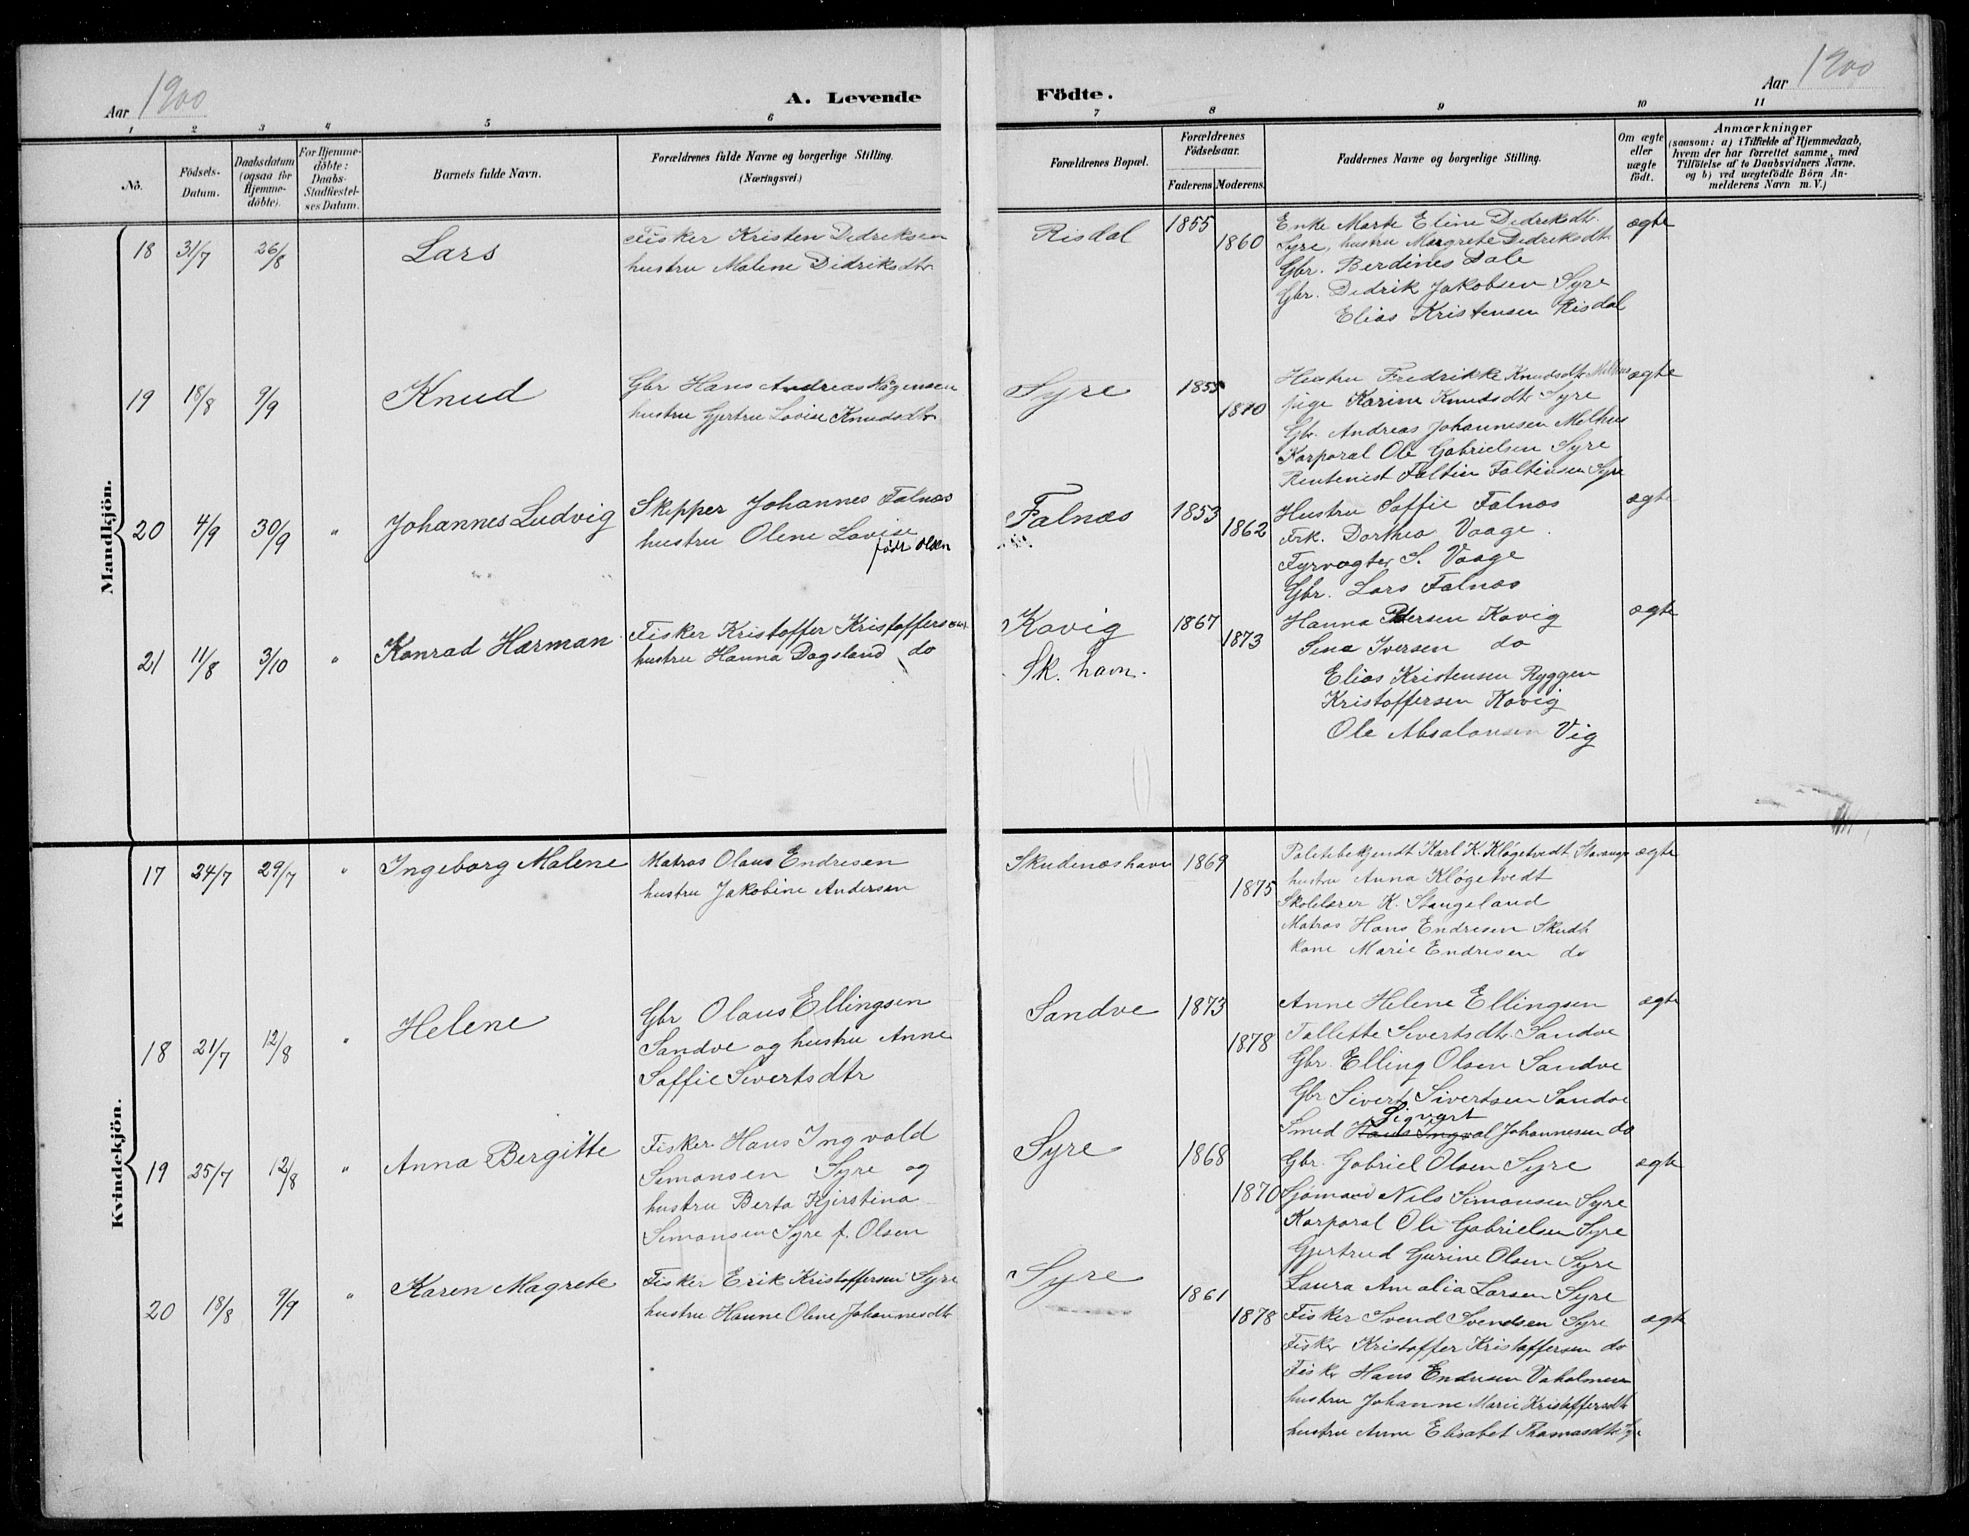 Aar 1900
A. Levende Födte.
Aar 1900
1 2 3 4 5 6 7 8 9 10 11
No.
Födsels-Datum.
Daabsdatum (ogsaa for Hjemme-döbte).
For Hjemme-döbte: Daabs-Stadfæstel-ses Datum.
Barnets fulde Navn.
Forældrenes fulde Navne og borgerlige Stilling. (Næringsvei.)
Forældrenes Bopæl.
Forældrenes Fødselsaar.
Faderens Moderens
Faddernes Navne og borgerlige Stilling.
Om ægte eller uægte født.
Anmærkninger
(saasom: a) i Tilfælde af Hjemmedaab,
hvem der har forrettet samme, med
Tilföielse af to Daabsvidners Navne.
og b) ved uægtefödte Börn An-
melderens Navn m. V.)
Mandkjön.
18 31/7 26/8 Lars
Fisker Kristen Didriksen
hustru Malene Didriksdtr.
Risdal 1855 1860
Enke Marte Eline Didriksdtr.
Syre, hustru Margrete Didriksdtr.
Gbr. Berdines Dale
Gbr. Didrik Jakobsen Syre
Elias Kristensen Risdal
ægte
19 18/8 9/9 Knud
Gbr Hans Andreas Hågensen
hustru Gjertru Lovise Knudsdtr
Syre 1855 1870
Hustru Fredrikke Knudsdtr Melhus
pige Karine Knudsdtr Syre
Gbr. Andreas Johannesen Melhus
Korporal Ole Gabrielsen Syre
Rentenist Faltin Faltinsen Syre
ægte
20 4/9 30/9 " Johannes Ludvig
Skipper Johannes Falnæs
hustru Olene Lovise
født Olsen
Falnæs 1853 1862
Hustru Soffie Falnæs
Frk. Dorthea Vaage
Fyrvogter S. Vaage
Gbr. Lars Falnæs
ægte
21 11/8 3/10 " Konrad Harman
Fisker Kristoffer Kristoffersen
hustru Hanna Dagsland do
Kovig
Sk. havn.
1867 1873
Hanna Petersen Kovig
Sina Iversen do
Elias Kristensen Ryggen
Kristoffersen Kovig
Ole Absalonsen Vig
ægte
Kvindekjön.
17 24/7 29/7 " Ingeborg Malene
Matros Olaus Endresen
hustru Jakobine Andersen
Skudenæshavn 1869 1875
Politibetjendt Karl K. Kløgetvedt Stavanger
hustru Anna Kløgetvedt
Skolelærer K. Stangeland
Matros Hans Endresen Skudh
Kone Marie Endresen do
ægte
18 21/7 12/8 " Helene
Gbr Olaus Ellingsen
Sandve og hustru Anne
Soffie Sivertsdtr
Sandve 1873 1878
Anne Helene Ellingsen
Tallette Sivertsdtr Sandve
Gbr. Elling Olsen Sandve
Gbr Sivert Sivertsen Sandve
Sigvart
Smed Hans Ingval Johannesen do
ægte
19 25/7 12/8 " Anna Bergitte
Fisker Hans Ingvald
Simonsen Syre og
hustru Berta Kjirstina
Simonsen Syre f. Olsen
Syre 1868 1870
Gbr. Gabriel Olsen Syre
Sjømand Nils Simonsen Syre
Korporal Ole Gabrielsen Syre
Gjertrud Gurine Olsen Syre
Laura Amalia Larsen Syre
ægte
20 18/8 9/9 " Karen Magrete
Fisker Erik Kristoffersen Syre
hustru Hanne Olene Johannesdtr
Syre 1861 1878
Fisker Svend Svendsen Syre
Fisker Kristoffer Kristoffersen do
Fisker Hans Endresen Vaholmen
hustru Johanne Marie Kristoffersdtr
hustru Anne Elisabet Thomasdtr Syre
ægte